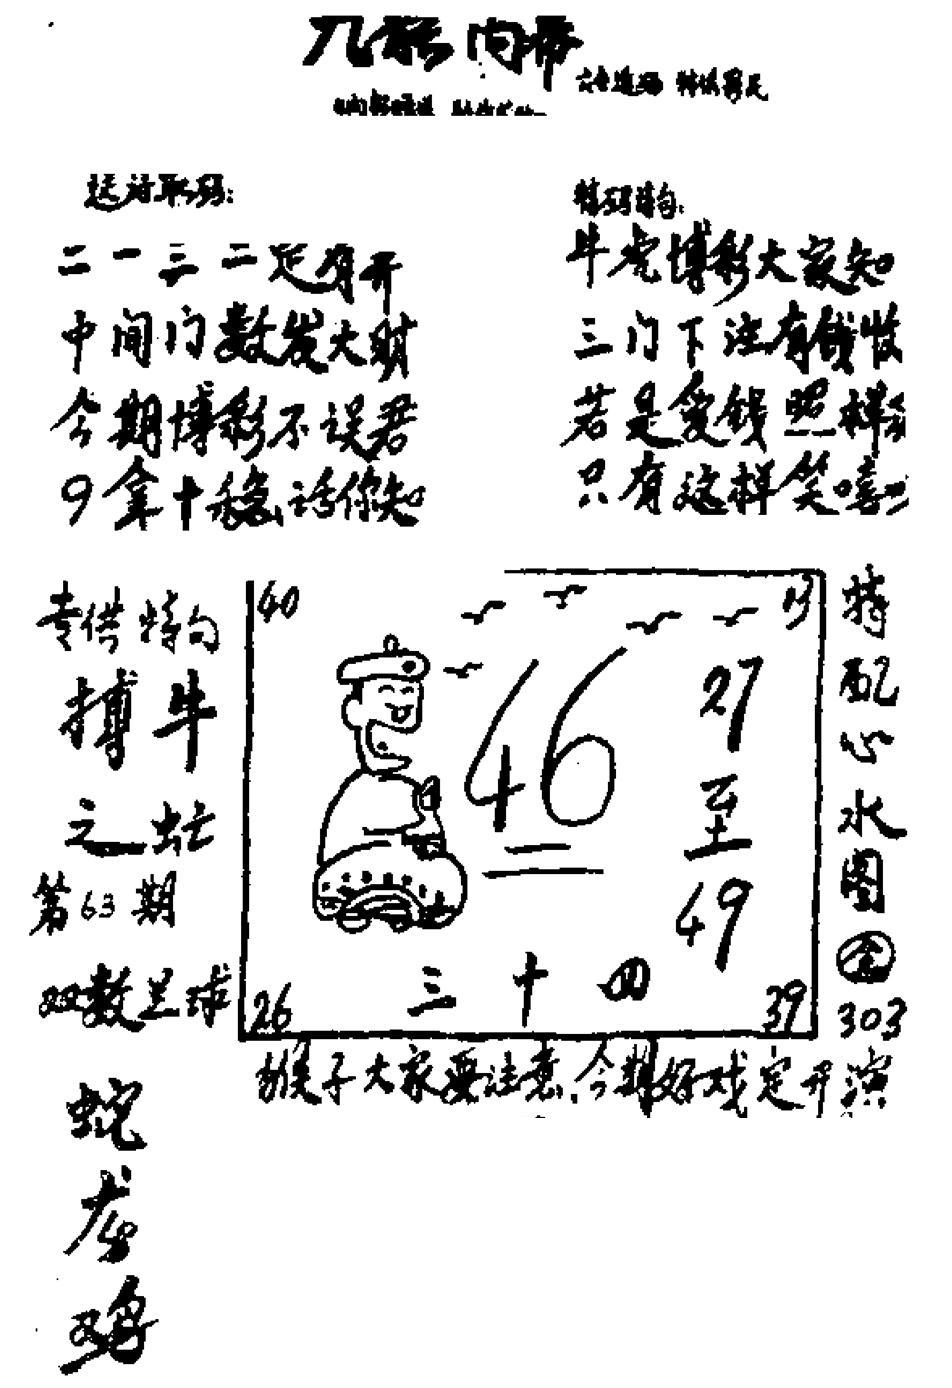 九龙内幕
二一三二定有开
中间门数发大财
今期博彩不误君
9拿十稳话你知
特码诗句:
牛虎博彩大家知
三门下注有钱收
若是爱钱照样
只有这样笑嘻
专供特句
搏牛
之虻
第63期
双数足球
蛇
龙
鸡
40
13
46
27
至
49
三十四
26
39
特配心水图
303
猴子大家要注意,今期好戏定开演